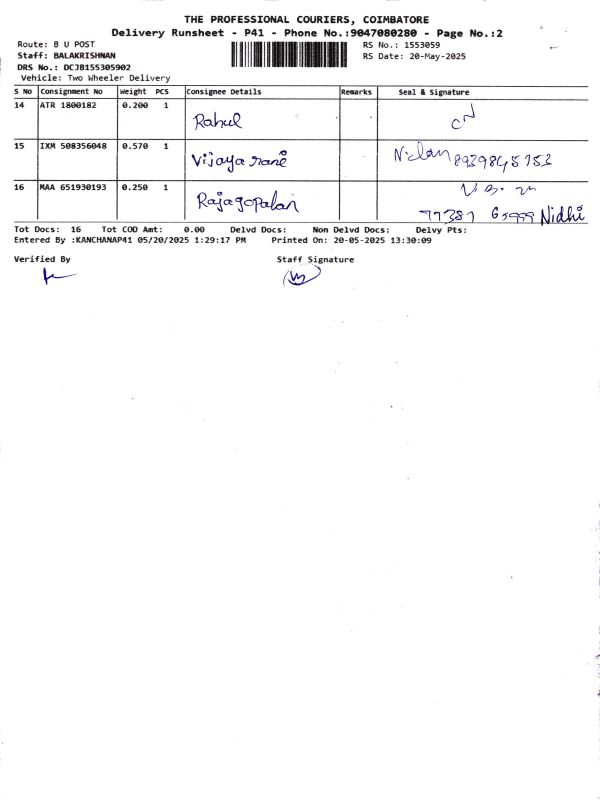 THE PROFESSIONAL COURIERS, COIMBATORE
Delivery Runsheet - P41 - Phone No.:9047080280 - Page No.:2
Route: B U POST RS No.: 1553059
Staff: BALAKRISHNAN RS Date: 20-May-2025
DRS No.: DCJB155305902
Vehicle: Two Wheeler Delivery
S No Consignment No Weight PCS Consignee Details Remarks Seal & Signature
14 ATR 1800182 0.200 1 Rahul
15 IXM 508356048 0.570 1 Vijaya rani
16 MAA 651930193 0.250 1 Rajagopalan Nidhi
Tot Docs: 16 Tot COD Amt: 0.00 Delvd Docs: Non Delvd Docs: Delvy Pts:
Entered By :KANCHANAP41 05/20/2025 1:29:17 PM Printed On: 20-05-2025 13:30:09
Verified By Staff Signature